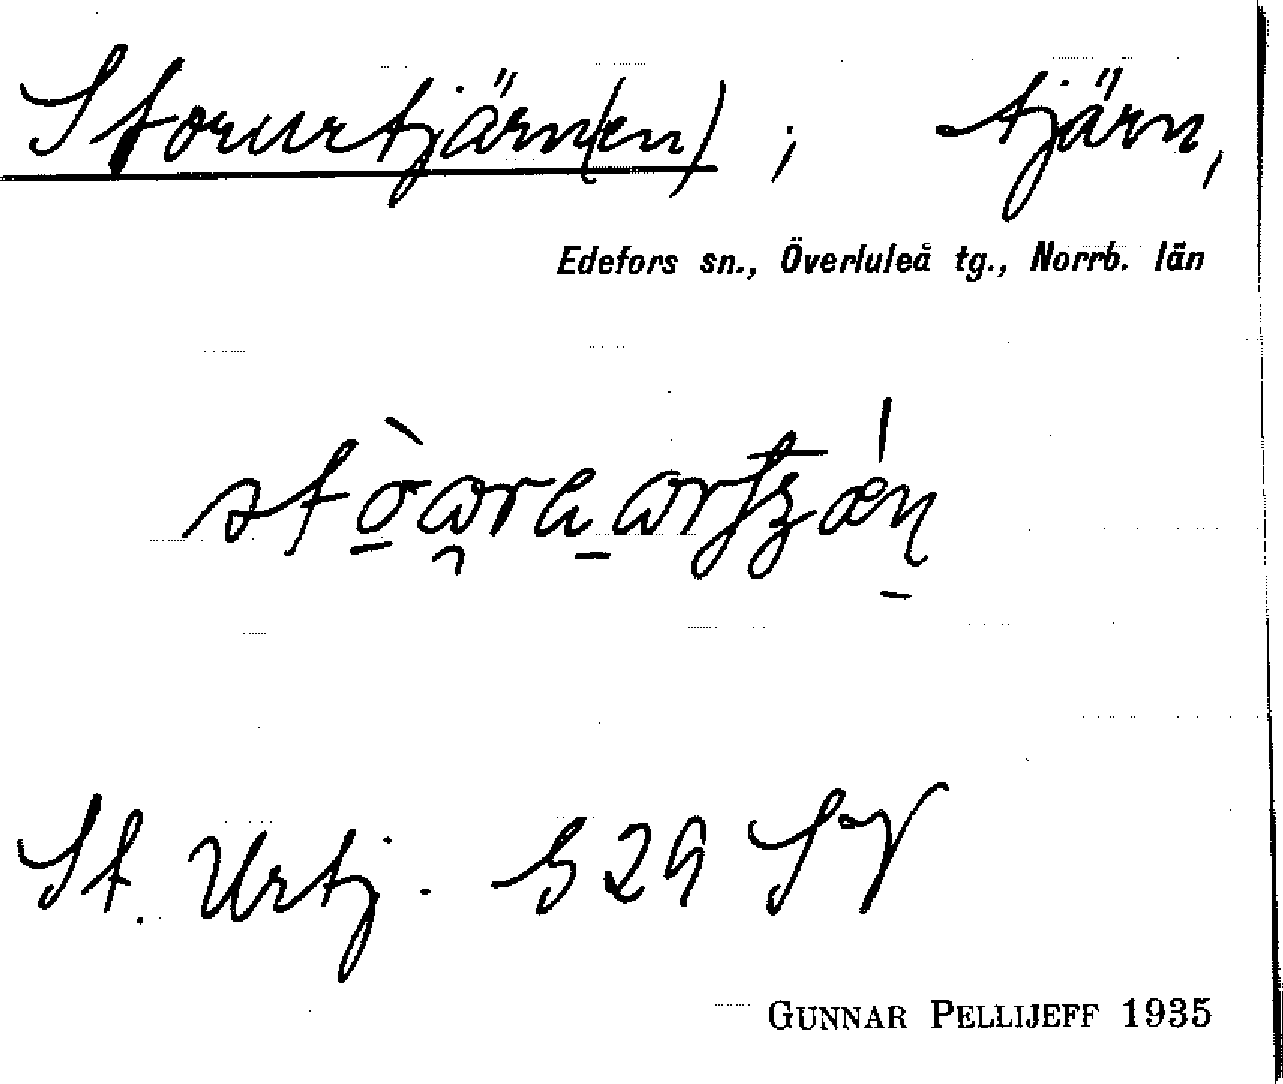 Storurtjärn(en) ; tjärn,
Edefors sn., Överluleå tg., Norrb. län
St. Urtj. 529 SV
GUNNAR PELLIJEFF 1935